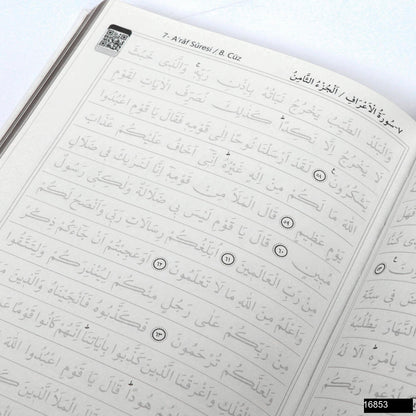 7- A'râf Sûresi / 8. Cüz
٧-سُورَةُ الْاَعْرَافِ / اَلْجُزْءُ الثَّامِنُ
وَالْبَلَدُ الطَّيِّبُ يَخْرُجُ نَبَاتُهُ بِاِذْنِ رَبِّهِ وَالَّذِي خَبُثَ
لَا يَخْرُجُ اِلَّا نَكِدًا كَذٰلِكَ نُصَرِّفُ الْاٰيَاتِ لِقَوْمٍ
يَشْكُرُونَ ٥٨ لَقَدْ اَرْسَلْنَا نُوحًا اِلٰى قَوْمِهِ فَقَالَ يَا قَوْمِ اعْبُدُوا
اللّٰهَ مَا لَكُمْ مِنْ اِلٰهٍ غَيْرُهُ اِنِّي اَخَافُ عَلَيْكُمْ عَذَابَ
يَوْمٍ عَظِيمٍ ٥٩ قَالَ الْمَلَاُ مِنْ قَوْمِهِ اِنَّا لَنَرٰيكَ فِي ضَلَالٍ
مُبِينٍ ٦٠ قَالَ يَا قَوْمِ لَيْسَ بِي ضَلَالَةٌ وَلٰكِنِّي رَسُولٌ
مِنْ رَبِّ الْعَالَمِينَ ٦١ اُبَلِّغُكُمْ رِسَالَاتِ رَبِّي وَاَنْصَحُ لَكُمْ
وَاَعْلَمُ مِنَ اللّٰهِ مَا لَا تَعْلَمُونَ ٦٢ اَوَعَجِبْتُمْ اَنْ جَاءَكُمْ ذِكْرٌ
مِنْ رَبِّكُمْ عَلٰى رَجُلٍ مِنْكُمْ لِيُنْذِرَكُمْ وَلِتَتَّقُوا
وَلَعَلَّكُمْ تُرْحَمُونَ ٦٣ فَكَذَّبُوهُ فَاَنْجَيْنَاهُ وَالَّذِينَ
وَاَغْرَقْنَا الَّذِينَ كَذَّبُوا بِاٰيَاتِنَا اِنَّهُمْ كَانُوا قَوْمًا
هُودًا قَالَ يَا قَوْمِ اعْبُدُوا اللّٰهَ
الْمَلَاُ الَّذِينَ
16853